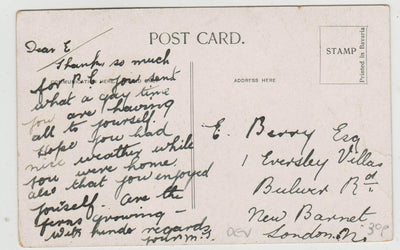 POST CARD.
STAMP
Printed in Bavaria
ADDRESS HERE
Dear E
Thanks so much
for P.C. you sent
what a gay time
you are having
all to yourself.
Hope you had
nice weather while
you were home.
also that you enjoyed
yourself. are the
ferns growing —
With kinde regards
E. Berry Esq
1 Eversley Villas
Bulwer Rd.
New Barnet
London. N.